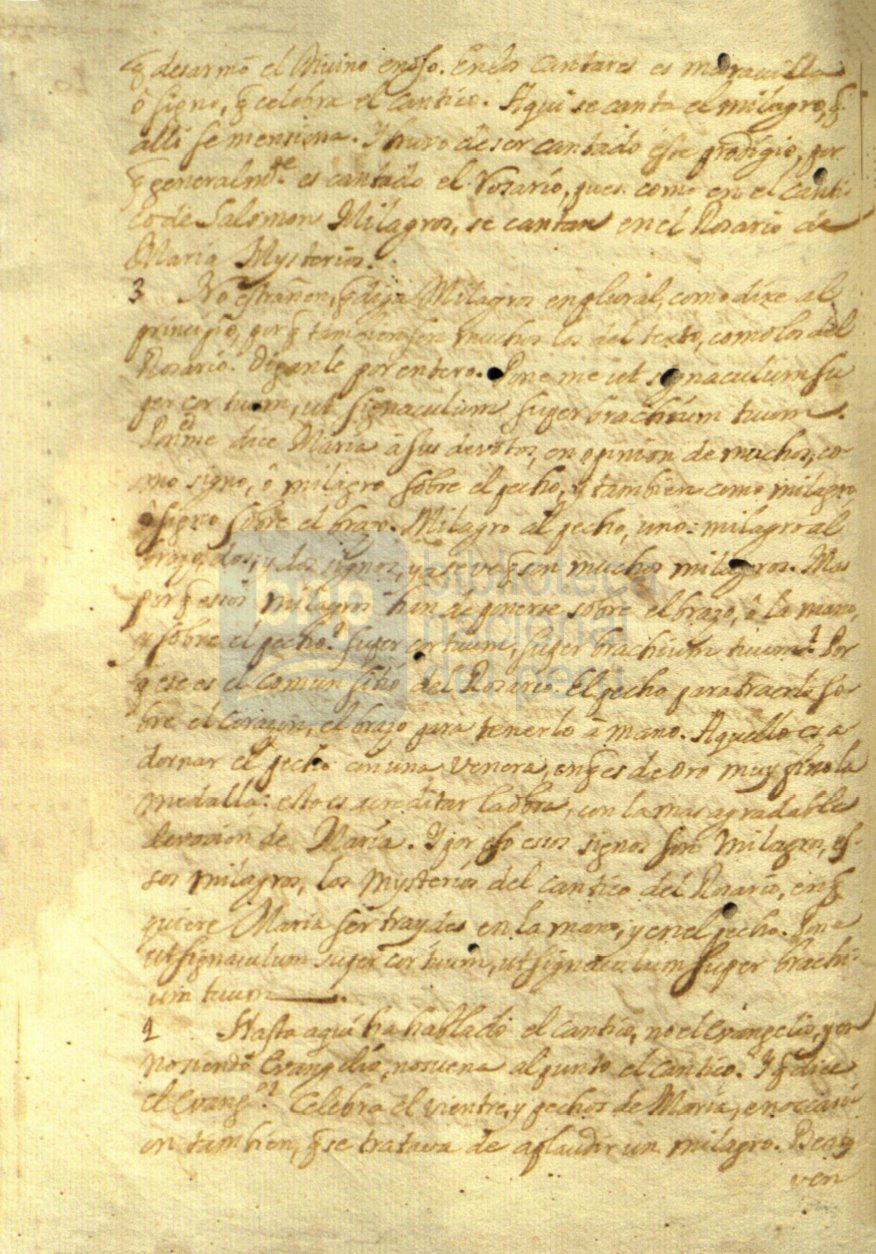 q̃ desarmó el Divino enojo. En los Cantares es maravilla
ô signo, q̃ celebra el Cantico. Aqui se canta el milagro, q̃
alli se mensiona. Y huvo de ser cantado esse prodigio, por
q̃ generalm.te es cantado el Rosario, pues como en el Canti-
co de Salomon Milagros, se cantan en el Rosario de
Maria Mysterios.
3 No estrañen, q̃ diga Milagros en plural, como dixe al
principio, por q̃ tambien son muchos los del texto, como los del
Rosario. Oiganle por entero. Pone me ut signaculum su
per cor tuum, ut signaculum super brachium tuum.
Ponesme dice Maria â sus devotos, en opinion de muchos, co-
mo signo, ô milagro sobre el pecho, y tambien como milagro
ô signo sobre el brazo. Milagro al pecho, uno: milagro al
brazo, dos; y dos signos, ya se ve q̃ son muchos milagros. Mas
por q̃ essos milagros han de ponerse sobre el brazo, ô la mano,
y sobre el pecho? Super cor tuum, super brachium tuum? Por
q̃ ese es el comun sitio del Rosario. El pecho para traerlo so-
bre el Corazon, el brazo para tenerlo â mano. Aquello es a
dornar el pecho con una venera, en q̃ es de oro muy fino la
medalla: esto es acreditar la obra, con la mas agradable
devocion de Maria. Y por eso essos signos son Milagros, es-
sos milagros, los Mysterios del Cantico del Rosario, en q̃
quiere Maria ser trayda en la mano, y en el pecho. Pone
ut signaculum super cor tuum, ut signaculum super brachi-
um tuum.
4 Hasta aqui ha hablado el Cantico, no el Evangelio, y en
no siendo Evangelio, no suena al punto el Cantico. Y q̃ dice
el Evang.o? Celebra el vientre, y pechos de Maria, en occasi
on tambien, q̃ se tratava de aplaudir un milagro. Beatus
ven
bnp biblioteca
nacional
del perú